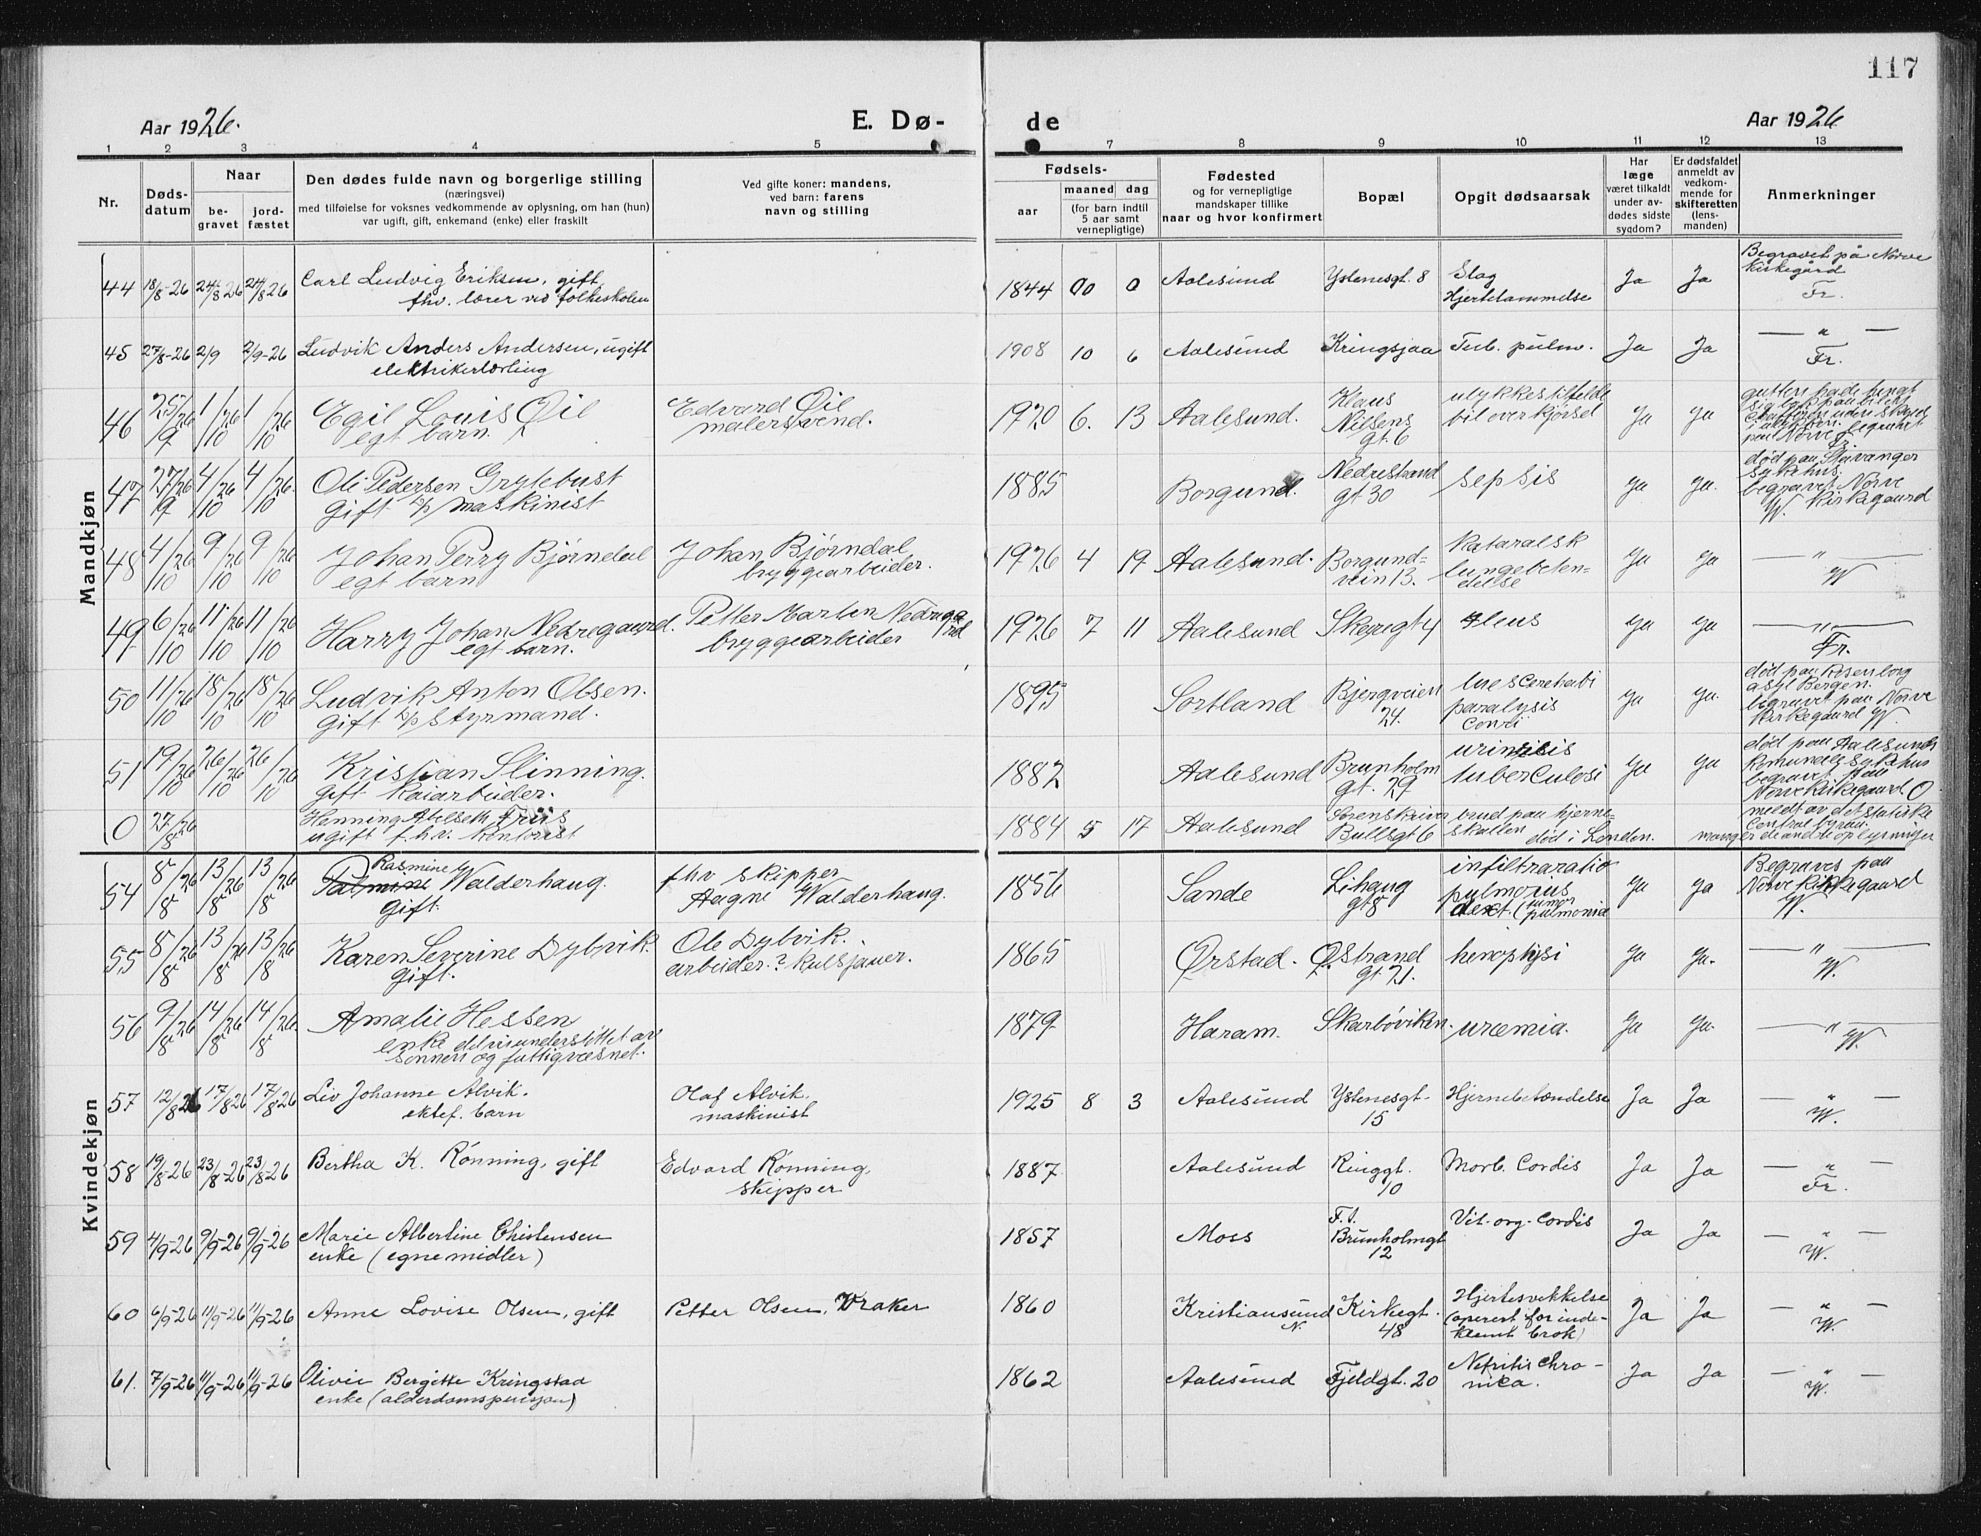 117
Aar 1926.
E. Dø- de
Aar 1926
1 2 3 4 5 7 8 9 10 11 12 13
Nr.
Døds-
datum
Naar
be-
gravet
jord-
fæstet
Den dødes fulde navn og borgerlige stilling
(næringsvei)
med tilføielse for voksnes vedkommende av oplysning, om han (hun)
var ugift, gift, enkemand (enke) eller fraskilt
Ved gifte koner: mandens,
ved barn: farens
navn og stilling
Fødsels-
aar
maaned dag
(for barn indtil
5 aar samt
vernepligtige)
Fødested
og for vernepligtige
mandskaper tillike
naar og hvor konfirmert
Bopæl
Opgit dødsaarsak
Har
læge
været tilkaldt
under av-
dødes sidste
sygdom?
Er dødsfaldet
anmeldt av
vedkom-
mende for
skifteretten
(lens-
manden)
Anmerkninger
Mandkjøn
44 18/8-26 24/8 26 24/8 26 Carl Ludvig Eriksen, gift,
fhv. lærer ved folkeskolen
1844 00 0 Aalesund Ystenesgt. 8 Slag
Hjertelammelse
Ja Ja Begravet på Nørve
Kirkegård
Fr.
45 27/8-26 2/9 2/9-26 Ludvik Anders Andersen, ugift
elektrikerlærling
1908 10 6 Aalesund Kringsjaa Tub. pulm. Ja Ja — " —
Fr.
46 25/9 26 1/10 26 1/10 26 Egil Louis Øil
egt barn.
Edvard Øil
malersvend.
1920 6. 13 Aalesund. Klaus
Nilsens
gt. 6
ulykkestilfelde
bil overkjørsel
ja ja gutten hadde hengt
47 27/9 26 4/10 26 4/10 26. Ole Pedersen Grytebust
gift maskinist
1885 Borgund. Nedrestrand
gt 30
sepsis ja ja. død paa Stavanger
sykehus.
begravet Nørve
W. kirkegaard
48 4/10 26 9/10 26 9/10 26 Johan Perry Bjørndal
egt barn
Johan Bjørndal
bryggearbeider.
1926 4 19 Aalesund. Borgund-
vein 13.
kataralsk
lungebeten-
delse
ja ja — " —
W
49 6/10 26 11/10 26 11/10 26 Harry Johan Nedregaard.
egt barn.
Petter Marten Nedregaard
bryggearbeider
1926 7 11 Aalesund Skeregt 4 ileus ja ja — " —
Fr.
50 11/10 26 18/10 26 18/10 26 Ludvik Anton Olsen.
gift styrmand.
1895 Sortland Bjergveien
24.
lues
paralysis
ja ja. død paa Rosenborg
asyl Bergen.
begravet paa Nørve
kirkegaard W.
51 19/10 26 26/10 26 26/10 26 Kristian Slinning.
gift kaiarbeider.
1882 Aalesund Brunholm
gt. 29
tuberculosi
ja ja død paa Aalesunds
Komunale sykehus
begravet
Nørve kirkegaard O
0 27/8 26 Henning Friis
ugift f.h.v. kontorist
1884 5 17 Aalesund Sorenskriver
Bullsgt 6
brud paa hjerne-
skallen død i London.
meldt av det statistiske
Centralbyraa.
mangler de andre oplysninger
Kvindekjøn
54 8/8 26 13/8 26 13/8 26 Rasmine
Palmine Walderhaug.
gift.
fhv skipper
Aagne Walderhaug.
1856 Sande Lihaug
gt 8
infiltraratio
pulmonus
dext. (tumor
pulmonia
ja ja Begraves paa
Nørve Kirkegaard
W.
55 8/8 26 13/8 26 13/8 26 Karen Severine Dybvik.
gift.
Ole Dybvik.
arbeider.? kulsjauer.
1865 Ørstad. Ø. Strand
gt 21.
hemoptysi ja ja. — " —
W.
56 9/8 26 14/8 26 14/8 26 Amalie Hessen
enke delvis understøttet av
sønnen og fattigvæsnet.
1879 Haram. Skarbøviken. uræmia. ja ja. — " —
W.
57 12/8 26 17/8 26 17/8 26 Liv Johanne Alvik.
ektef. barn
Olaf Alvik.
maskinist
1925 8 3 Aalesund Ystenesgt.
15
Hjernebetændelse Ja Ja — " —
W.
58 19/8-26 23/8-26 23/8-26 Bertha K. Rönning, gift Edvard Rönning,
skipper
1887 Aalesund Ringgt.
10
Morb. Cordis Ja Ja — " —
Fr.
59 4/9-26 9/9-26 9/9-26 Marie Albertine Christensen
enke (egne midler)
1857 Moss F.t.
Brunholmgt
12
Vit. org. Cordis Ja Ja — " —
W.
60 6/9-26 11/9-26 11/9-26 Anne Lovise Olsen, gift Petter Olsen, Vraker
1860 Kristiansund
N.
Kirkegt.
48
Hjertesvekkelse
(operert for inde-
klemt brok)
Ja Ja — " —
W.
61. 7/9-26 11/9-26 11/9-26 Olivie Bergitte Kringstad
enke (alderdomspensjon)
1862 Aalesund Fjeldgt. 20 Nefritis chro-
nica.
Ja Ja — " —
W.